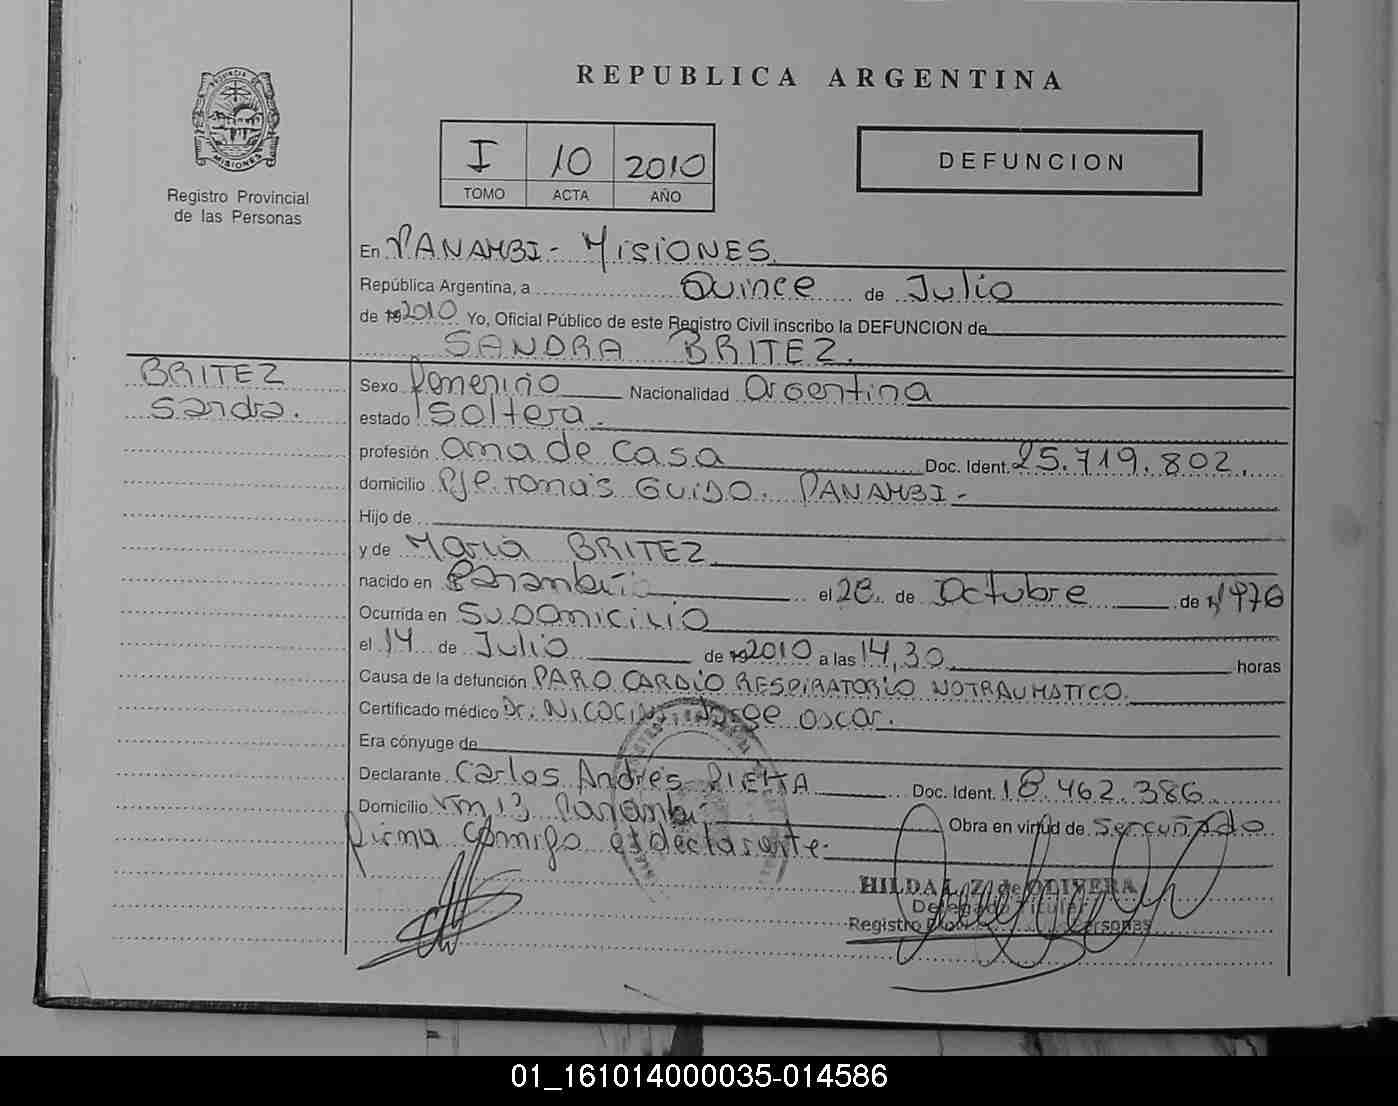 REPUBLICA ARGENTINA
PROVINCIA DE
MISIONES
Registro Provincial
de las Personas
I 10 2010
TOMO ACTA AÑO
DEFUNCION
En PANAMBI - MISIONES
República Argentina, a Quince de Julio
de 19 2010 Yo, Oficial Público de este Registro Civil inscribo la DEFUNCION de
SANDRA BRITEZ.
BRITEZ
Sandra.
Sexo femenino Nacionalidad argentina
estado Soltera.
profesión ama de casa Doc. Ident. 25.719.802.
domicilio Pje. Tomás GUIDO. PANAMBI -
Hijo de
y de Maria BRITEZ
nacido en Panambí el de Octubre de 1976
Ocurrida en Su Domicilio
el 14 de Julio de 19 2010 a las 14,30 horas
Causa de la defunción PARO CARDIO RESPIRATORIO NO TRAUMATICO.
Certificado médico Dr. Jorge Oscar.
Era cónyuge de
Declarante Carlos Andrés Doc. Ident. 18.462.386
Domicilio Km 13 Panambí Obra en virtud de Ser cuñado
firma conmigo el declarante.
HILDA L. Z. de OLIVERA
Delegada Titular
Registro Personas
01_161014000035-014586